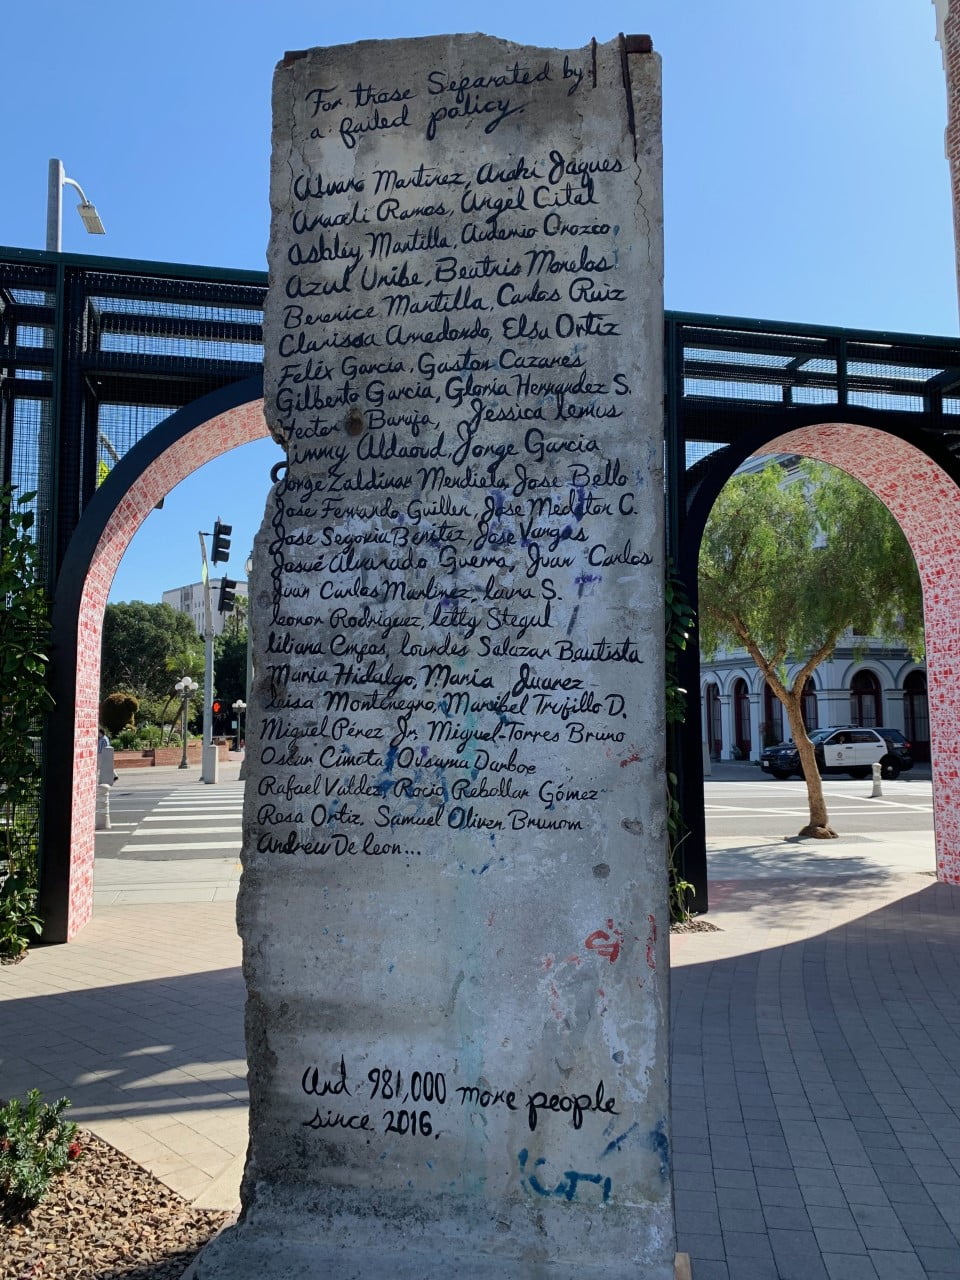 For those Separated by
a failed policy.
Alvaro Martinez, Anahi Jaques
Araceli Ramos, Angel Cital
Ashley Mantilla, Audemio Orozco,
Azul Uribe, Beatris Morelos
Berenice Mantilla, Carlos Ruiz
Clarissa Arredondo, Elsa Ortiz
Felix Garcia, Gaston Cazares
Gilberto Garcia, Gloria Hernandez S.
Hector Baruja, Jessica Lemus
Jimmy Aldaoud, Jorge Garcia
Jorge Zaldivar Mendieta, Jose Bello
Jose Fernando Guillen, Jose C.
Jose Segovia Benitez, Jose Vargas
Josué Alvarado Guerra, Juan Carlos
Juan Carlos Martinez, Laura S.
Leonor Rodriguez, Letty Stegul
Liliana, Lourdes Salazar Bautista
Maria Hidalgo, Maria Juarez
Luisa Montenegro, Maribel Trujillo D.
Miguel Pérez Jr, Miguel Torres Bruno
Oscar, Ousama Darboe
Rafael Valdez, Rocio Rebollar Gómez
Rosa Ortiz, Samuel Oliver Brunom
Andrew De Leon...
And 981,000 more people
since 2016.